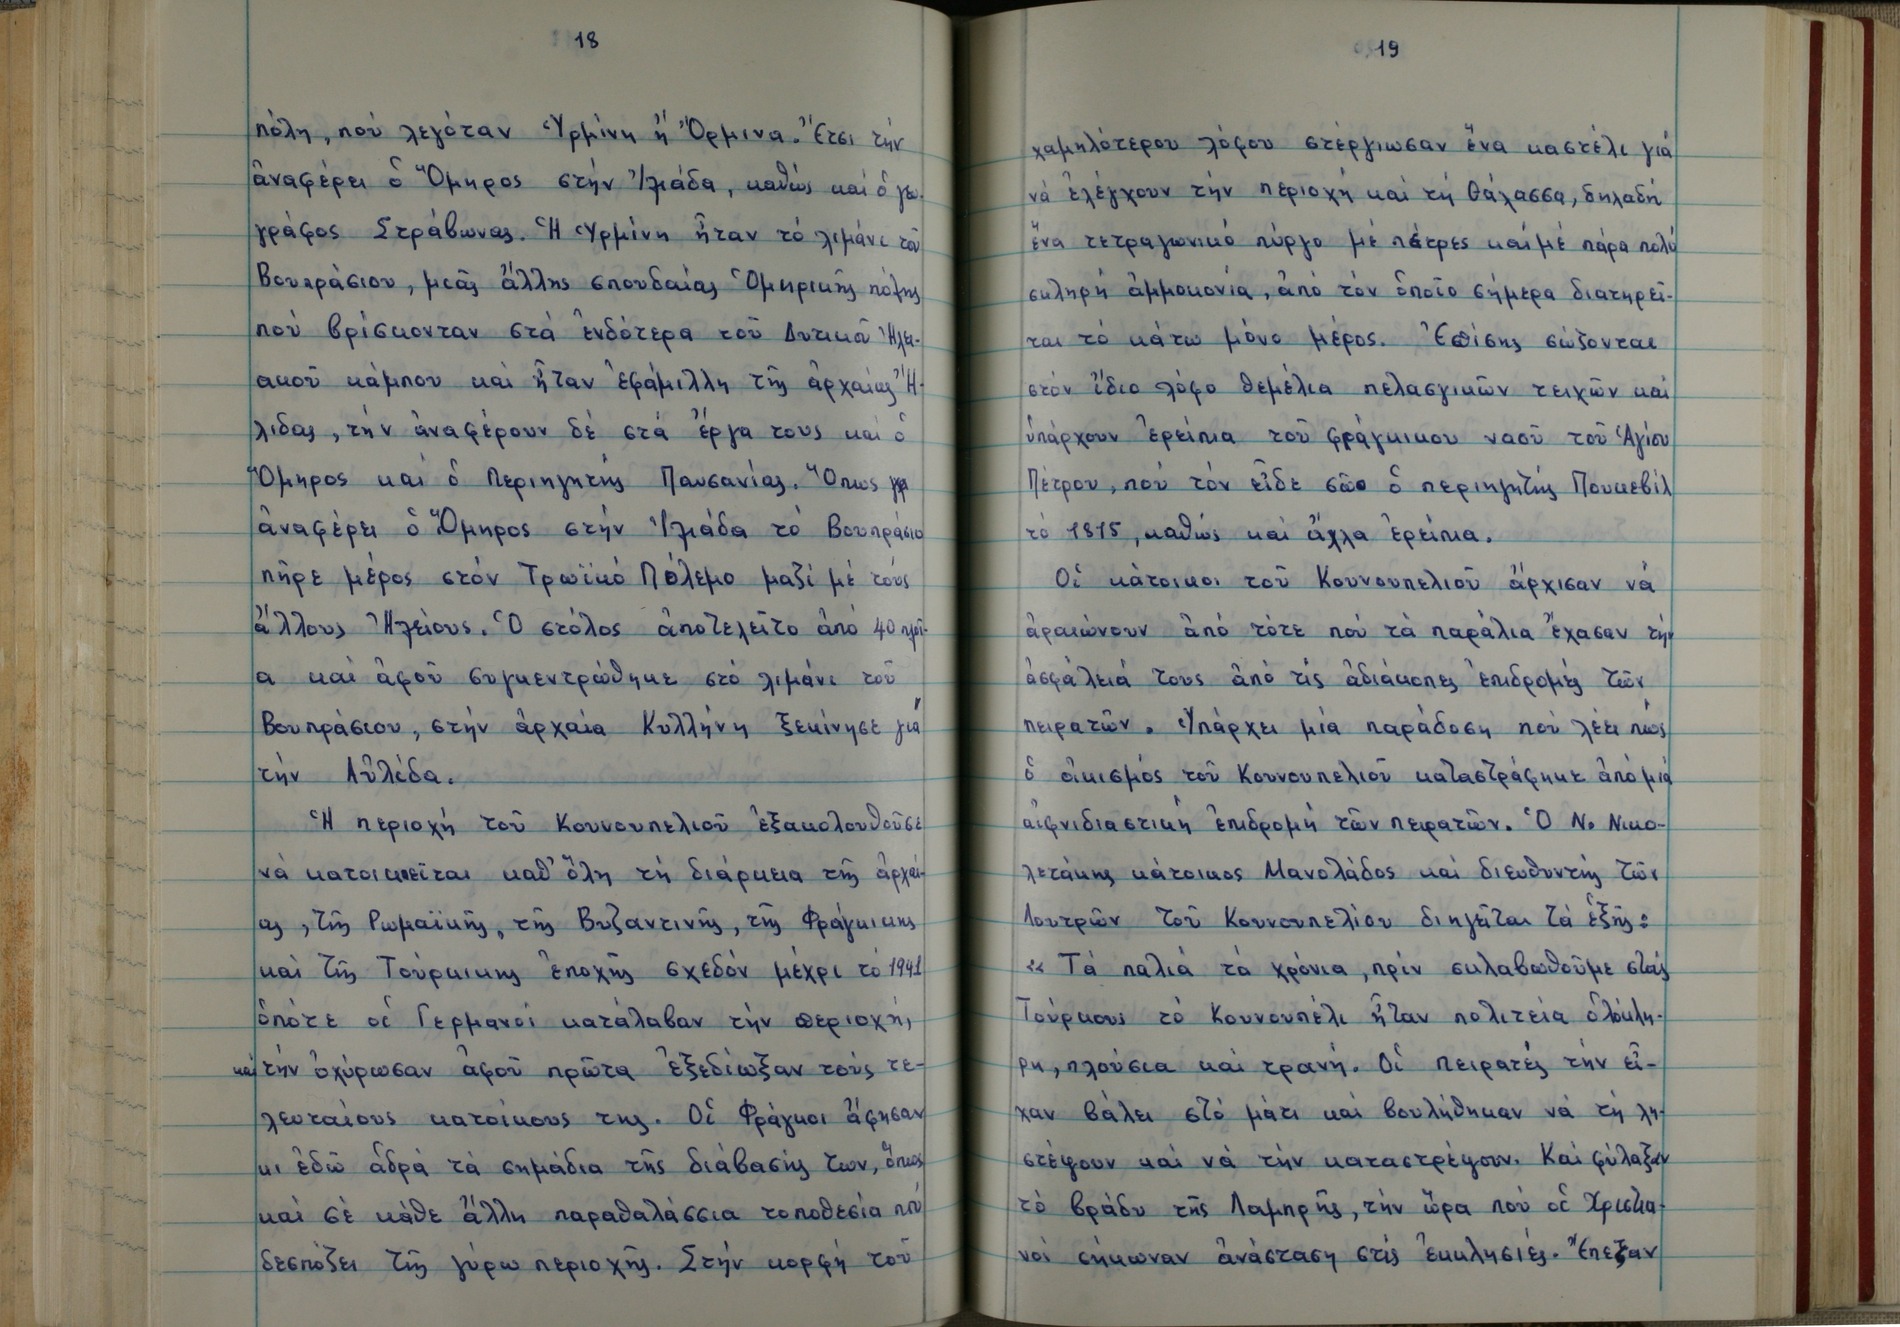 18
πόλη, πού λεγόταν Ὑρμίνη ἤ Ὄρμινα. Ἔτσι τήν
ἀναφέρει ὁ Ὅμηρος στήν Ἰλιάδα, καθώς καί ὁ γεω-
γράφος Στράβωνας. Ἡ Ὑρμίνη ἦταν τό λιμάνι τοῦ
Βουπράσιου, μιᾶς ἄλλης σπουδαίας Ὁμηρικῆς πόλης
πού βρίσκονταν στά ἐνδότερα τοῦ Δυτικοῦ Ἠλει-
ακοῦ κάμπου καί ἦταν ἐφάμιλλη τῆς ἀρχαίας Ἤ-
λιδας, τήν ἀναφέρουν δέ στά ἔργα τους καί ὁ
Ὅμηρος καί ὁ Περιηγητής Παυσανίας. Ὅπως
ἀναφέρει ὁ Ὅμηρος στήν Ἰλιάδα τό Βουπράσιο
πῆρε μέρος στόν Τρωϊκό Πόλεμο μαζί μέ τούς
ἄλλους Ἠλείους. Ὁ στόλος ἀποτελεῖτο ἀπό 40 πλοῖ-
α καί ἀφοῦ συγκεντρώθηκε στό λιμάνι τοῦ
Βουπράσιου, στήν ἀρχαία Κυλλήνη ξεκίνησε γιά
τήν Αὐλίδα.
Ἡ περιοχή τοῦ Κουνουπελιοῦ ἐξακολουθοῦσε
νά κατοικεῖται καθ' ὅλη τή διάρκεια τῆς ἀρχαί-
ας, τῆς Ρωμαϊκῆς, τῆς Βυζαντινῆς, τῆς Φράγκικης
καί τῆς Τούρκικης ἐποχῆς σχεδόν μέχρι τό 1941
ὁπότε οἱ Γερμανοί κατάλαβαν τήν περιοχή,
καί τήν ὀχύρωσαν ἀφοῦ πρῶτα ἐξεδίωξαν τούς τε-
λευταίους κατοίκους της. Οἱ Φράγκοι ἄφησαν
κι ἐδῶ ἁδρά τά σημάδια τῆς διάβασής των, ὅπως
καί σέ κάθε ἄλλη παραθαλάσσια τοποθεσία πού
δεσπόζει τῆς γύρω περιοχῆς. Στήν κορφή τοῦ
19
χαμηλότερου λόφου στέργιωσαν ἕνα καστέλι γιά
νά ἐλέγχουν τήν περιοχή καί τή θάλασσα, δηλαδή
ἕνα τετραγωνικό πύργο μέ πέτρες καί μέ πάρα πολύ
σκληρή ἀμμοκονία, ἀπό τόν ὁποῖο σήμερα διατηρεῖ-
ται τό κάτω μόνο μέρος. Ἐπίσης σώζονται
στόν ἴδιο λόφο θεμέλια πελασγικῶν τειχῶν καί
ὑπάρχουν ἐρείπια τοῦ φράγκικου ναοῦ τοῦ Ἁγίου
Πέτρου, πού τόν εἶδε σῶο ὁ περιηγητής Πουκεβίλ
τό 1815, καθώς καί ἄλλα ἐρείπια.
Οἱ κάτοικοι τοῦ Κουνουπελιοῦ ἄρχισαν νά
ἀραιώνουν ἀπό τότε πού τά παράλια ἔχασαν τήν
ἀσφάλειά τους ἀπό τίς ἀδιάκοπες ἐπιδρομές τῶν
πειρατῶν. Ὑπάρχει μία παράδοση πού λέει πώς
ὁ οἰκισμός τοῦ Κουνουπελιοῦ καταστράφηκε ἀπό μιά
αἰφνιδιαστική ἐπιδρομή τῶν πειρατῶν. Ὁ Ν. Νικο-
λετάκης κάτοικος Μανολάδος καί διευθυντής τῶν
Λουτρῶν τοῦ Κουνουπελίου διηγεῖται τά ἑξῆς:
« Τά παλιά τά χρόνια, πρίν σκλαβωθοῦμε στούς
Τούρκους τό Κουνουπέλι ἦταν πολιτεία ὁλόκλη-
ρη, πλούσια καί τρανή. Οἱ πειρατές τήν εἶ-
χαν βάλει στό μάτι καί βουλήθηκαν νά τή λη-
στέψουν καί νά τήν καταστρέψουν. Καί φύλαξαν
τό βράδυ τῆς Λαμπρῆς, τήν ὥρα πού οἱ Χριστια-
νοί σήκωναν ἀνάσταση στίς ἐκκλησιές. Ἔπεξαν